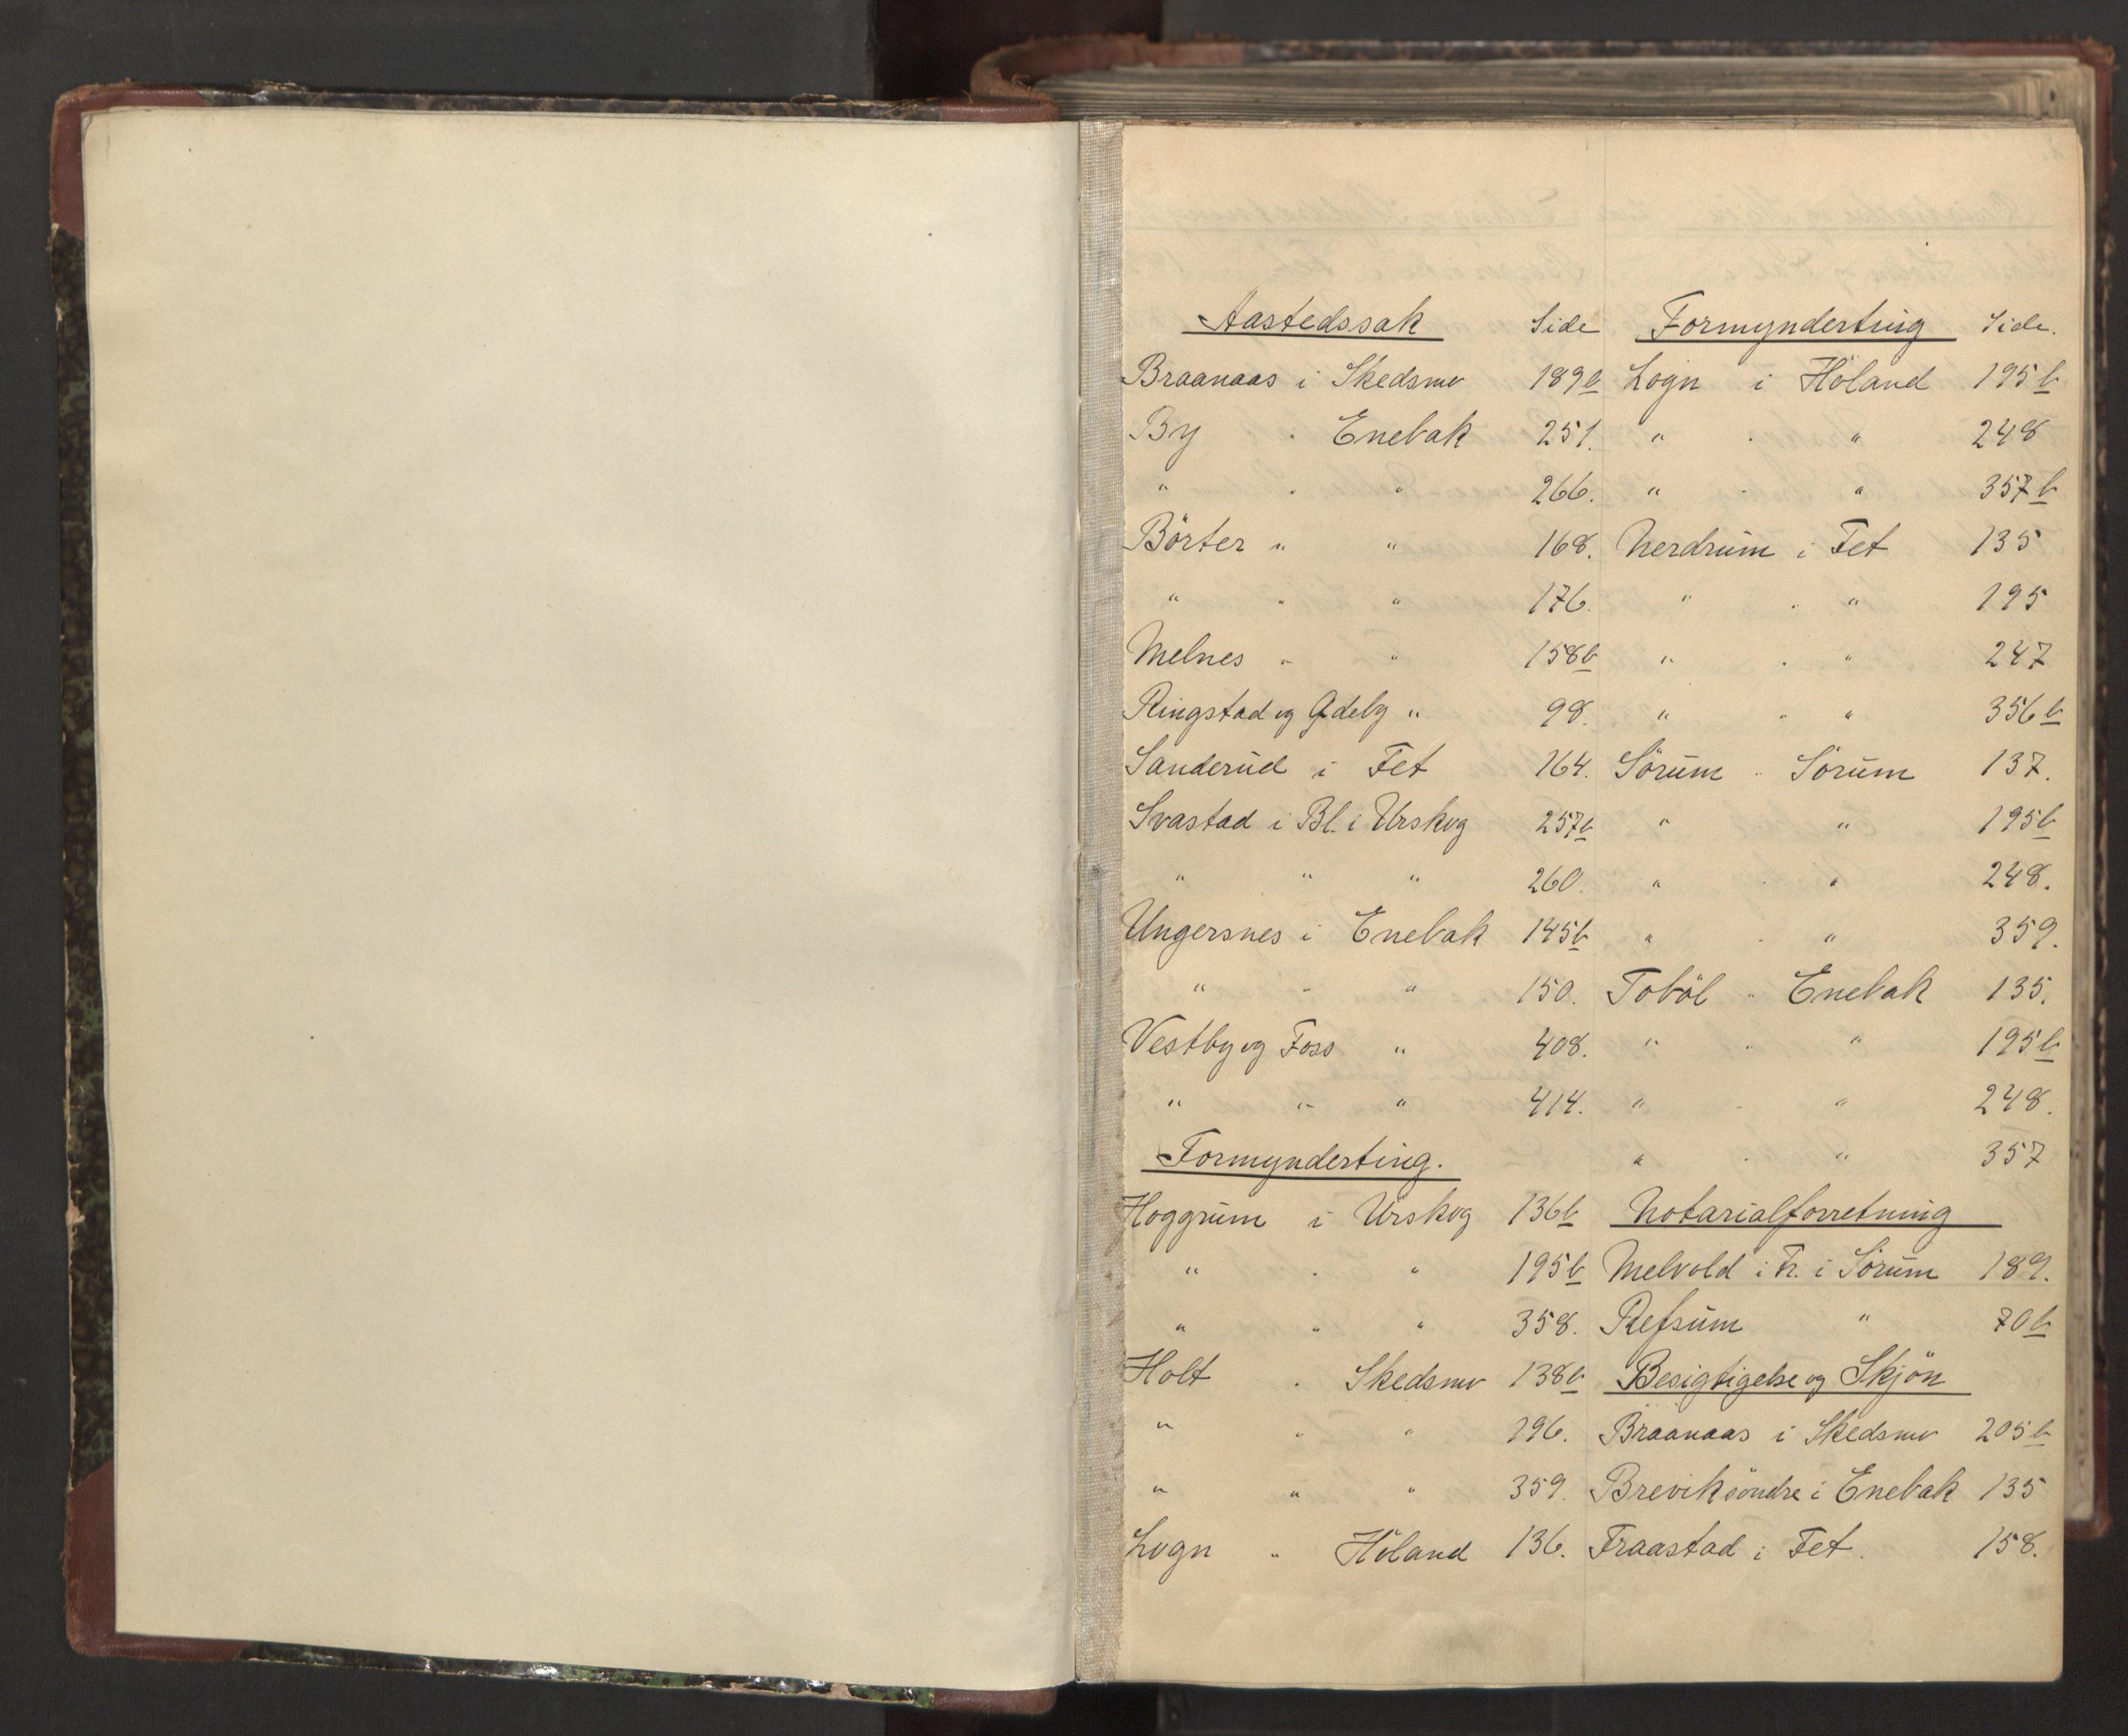 Aastedssak Side
Braanaas i Skedsmo 189b
By " Enebak 251.
" " " 266.
Börter " " 168.
" " " 176.
Melnes " " 158b
Ringstad og Ødeby " 98.
Sanderud i Fet 164.
Svastad i Bl. i Urskog 257b
" " " 260.
Ungersnes i Enebak 145b
" " " 150.
Vestby og Foss " 408.
" " " 414.
Formynderting.
Hoggrum i Urskog 136b
" " " 195b
" " " 358.
Holt " Skedsmo 138b
" " " 196.
" " " 359.
Logn " Höland 136.
Formynderting Side.
Logn i Höland 195b
" " " 248
" " " 357b
Nerdrum i Fet 135
" " " 195
" " " 247
" " " 356b
Sörum " Sörum 137.
" " 195b
" " " 248.
" " " 359.
Toböl " Enebak 135.
" " " 195b
" " " 248.
" " " 357
Notarialforretning
Melvold i Fr. i Sörum 189.
Refsum " 70b
Besigtigelse og Skjön
Braanaas i Skedsmo 205b
Brevik söndre i Enebak 135
Fraastad i Fet. 158.